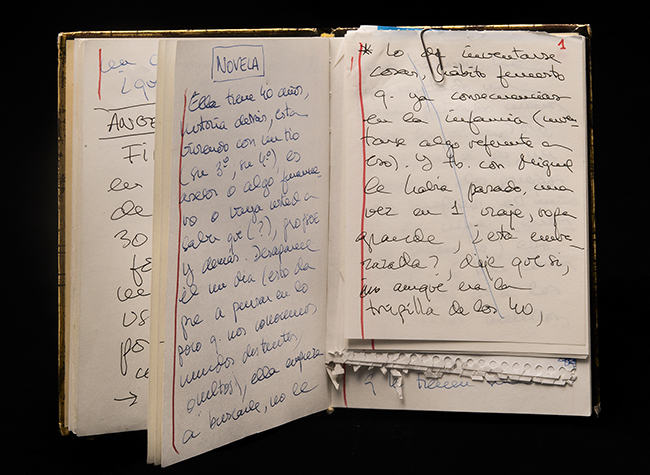 ¿qu
ANGE
FI
en
de
30
fe
us
po
→
NOVELA
Ella tiene 40 años,
historia detrás, está
viviendo con un tío
(su 3º, su 4º), es
asesor o algo, financie
ro o vaya usted a
saber qué (?), profesor
y demás. Desaparece
él un día (esto da
pie a pensar en lo
poco q. nos conocemos
mundos distintos,
ocultos), ella empieza
a buscarle, no le
1
* Lo de inventarse
cosas, hábito funesto
q. ya consecuencias
en la infancia (inven-
tarse algo referente a
eso). Y tb. con Miguel
le había pasado, una
vez en 1 viaje, ropa
grande, ¿está emba-
razada?, dije que sí,
aunque era la
tripilla de los 40,
tienen